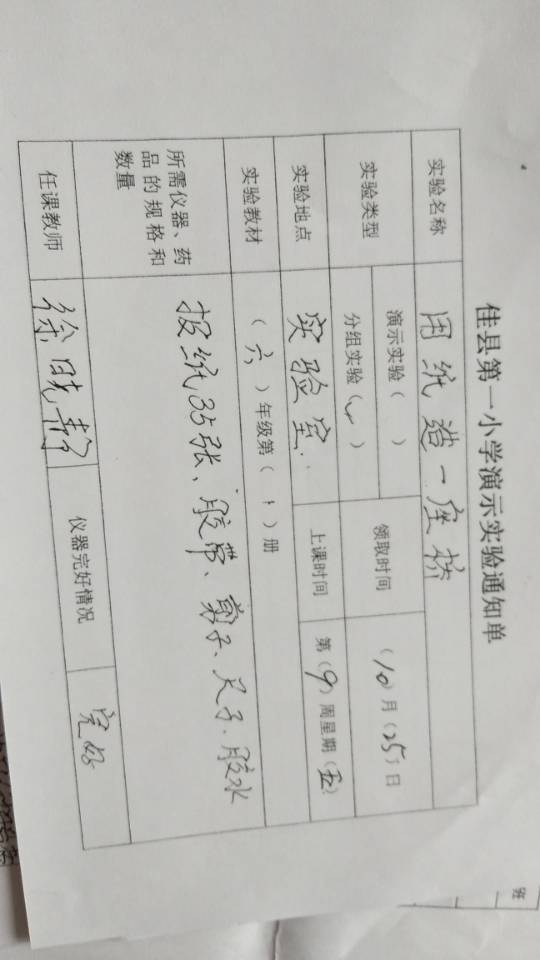 佳县第一小学演示实验通知单
实验名称 用纸造一座桥
实验类型 演示实验( ) 领取时间 (10)月(25)日
分组实验(✓)
实验地点 实验室 上课时间 第(9)周星期(五)
实验教材 (六)年级第(1)册
所需仪器、药
品的规格和
数量
报纸35张、胶带、剪子、尺子、胶水
任课教师 徐晓静 仪器完好情况 完好
班